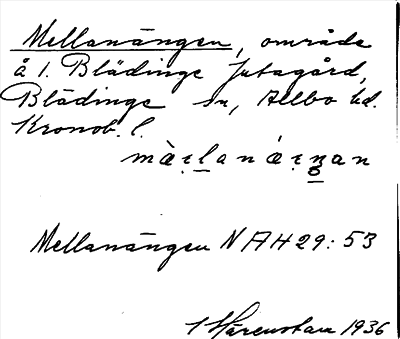 Mellanängen, område
å 1. Blädinge Jutagård,
Blädinge sn, Allbo hd.
Kronob. l.
Mellanängen NAH 29: 53
1936